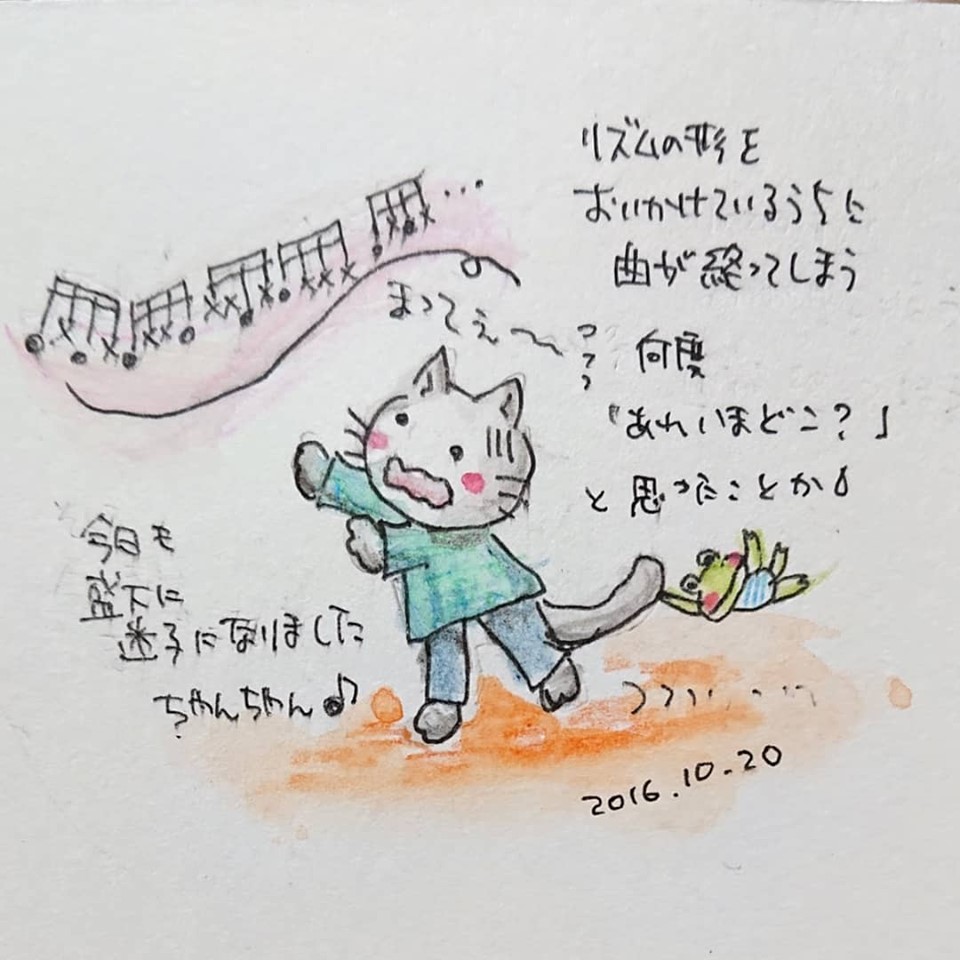 リズムの形を
おいかけているうちに
曲が終ってしまう
まってぇ〜
何度
「あれいまどこ？」
と思ったことか
今日も
盛大に
迷子になりました
ちゃんちゃん♪
2016.10.20